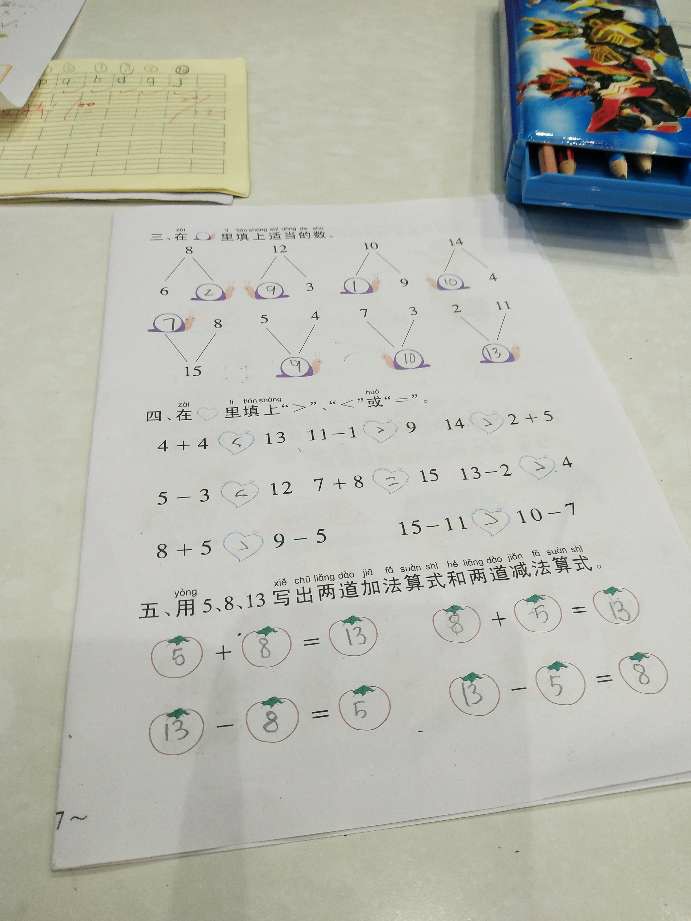 b d g j
100
zài lǐ tián shàng shì dàng de shù
三、在 里填上适当的数。
8 12 10 14
6 2 9 3 1 9 10 4
7 8 5 4 7 3 2 11
15 9 10 13
zài lǐ tián shàng huò
四、在 里填上“>”、“<”或“=”。
4+4 < 13 11-1 > 9 14 > 2+5
5-3 < 12 7+8 = 15 13-2 > 4
8+5 > 9-5 15-11 > 10-7
yòng xiě chū liǎng dào jiā fǎ suàn shì hé liǎng dào jiǎn fǎ suàn shì
五、用 5、8、13 写出两道加法算式和两道减法算式。
5 + 8 = 13 8 + 5 = 13
13 - 8 = 5 13 - 5 = 8
7~